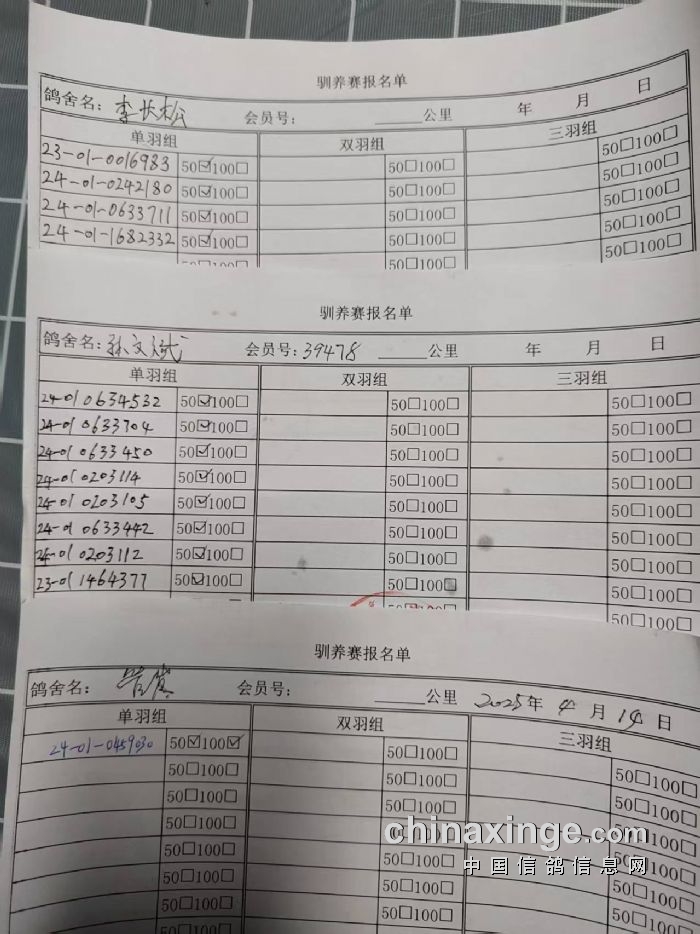 驯养赛报名单
鸽舍名：李长松 会员号： ______公里 年 月 日
单羽组 双羽组 三羽组
23-01-0016983 50☑100☐ 50☐100☐ 50☐100☐
24-01-0242180 50☑100☐ 50☐100☐ 50☐100☐
24-01-0633711 50☑100☐ 50☐100☐ 50☐100☐
24-01-1682332 50☑100☐ 50☐100☐ 50☐100☐
50☐100☐ 50☐100☐ 50☐100☐
驯养赛报名单
鸽舍名：孙文斌 会员号：39478 ______公里 年 月 日
单羽组 双羽组 三羽组
24-01 0634532 50☑100☐ 50☐100☐ 50☐100☐
24-01 0633704 50☑100☐ 50☐100☐ 50☐100☐
24-01 0633450 50☑100☐ 50☐100☐ 50☐100☐
24-01 0203114 50☑100☐ 50☐100☐ 50☐100☐
24-01 0203105 50☑100☐ 50☐100☐ 50☐100☐
24-01 0633442 50☑100☐ 50☐100☐ 50☐100☐
24-01 0203112 50☑100☐ 50☐100☐ 50☐100☐
23-01 1464377 50☑100☐ 50☐100☐ 50☐100☐
50☐100☐ 50☐100☐
驯养赛报名单
鸽舍名： 会员号： ______公里 2025年 4月 14日
单羽组 双羽组 三羽组
24-01-0459030 50☑100☑ 50☐100☐ 50☐100☐
50☐100☐ 50☐100☐ 50☐100☐
50☐100☐ 50☐100☐ 50☐100☐
50☐100☐ 50☐100☐ 50☐100☐
50☐100☐ 50☐100☐ 50☐100☐
50☐100☐ 50☐100☐ 50☐100☐
50☐100☐ 50☐100☐ 50☐100☐
chinaxinge.com
中国信鸽信息网